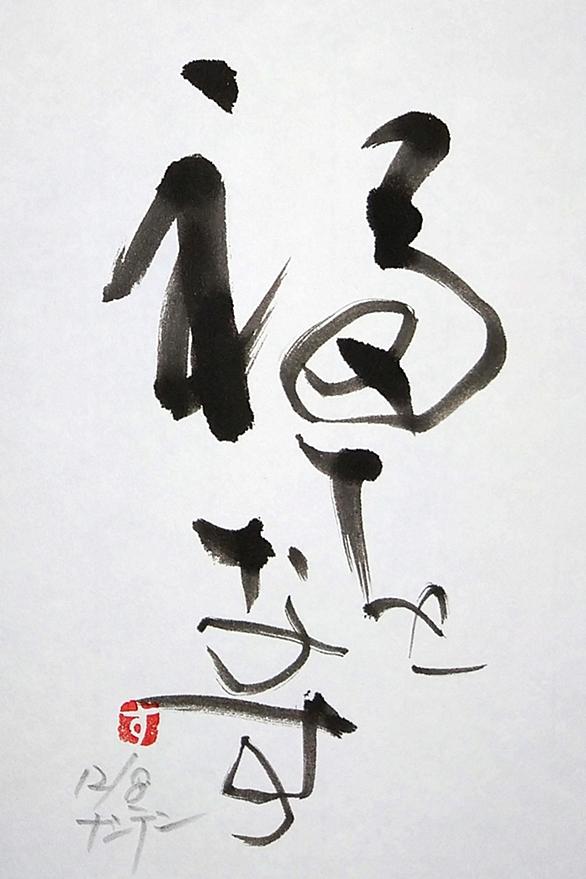 福を
なす
12/8
ナンテン